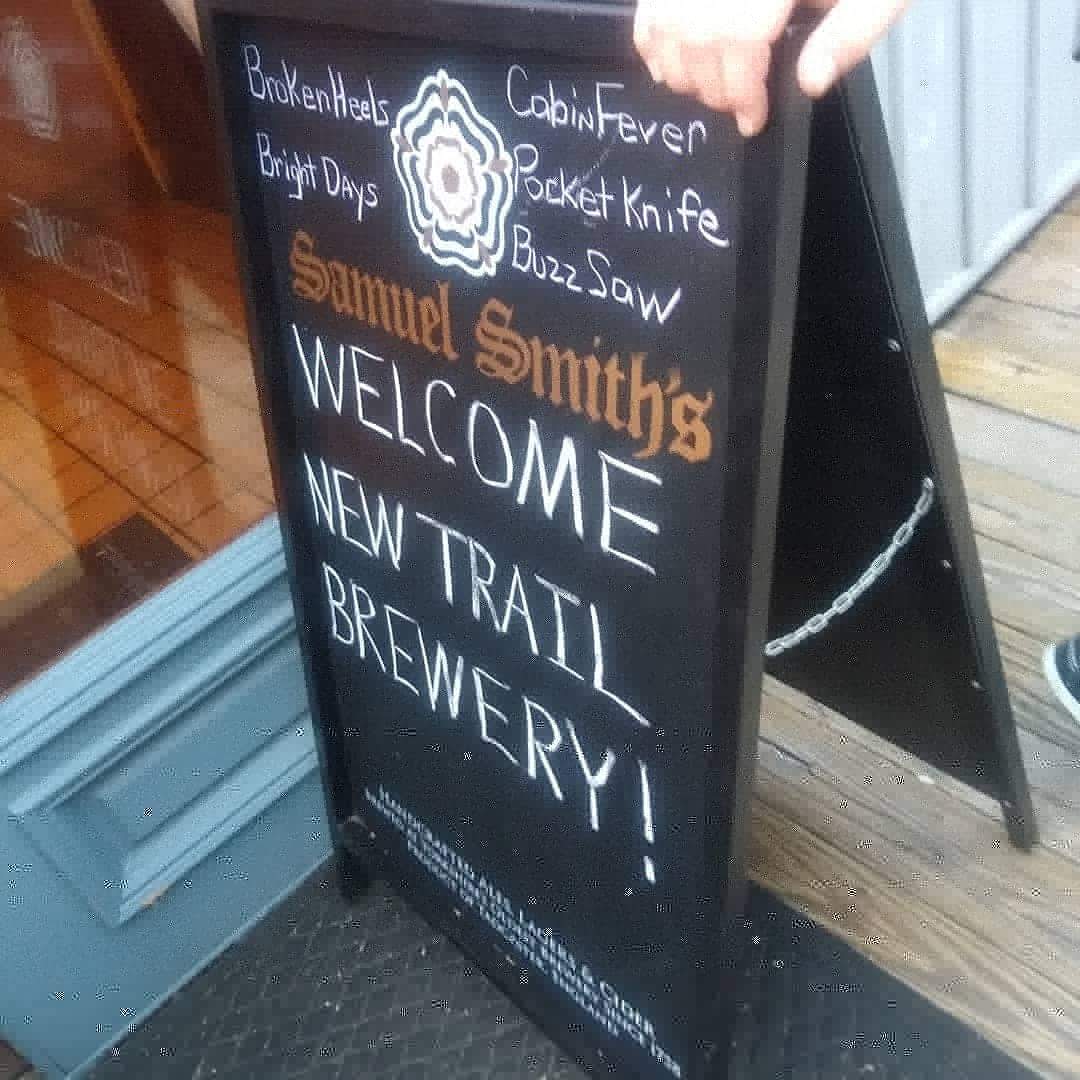 Broken Heels
Bright Days
Cabin Fever
Pocket Knife
Buzz Saw
Samuel Smith's
WELCOME
NEW TRAIL
BREWERY!
HANDCRAFTED ALES, LAGERS & CIDER